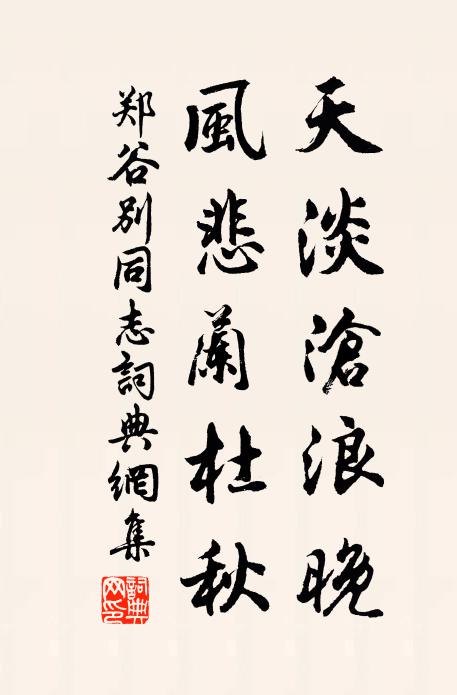 天淡滄浪晚
風悲蘭杜秋
郑谷別同志詞典網集
詞典
网印